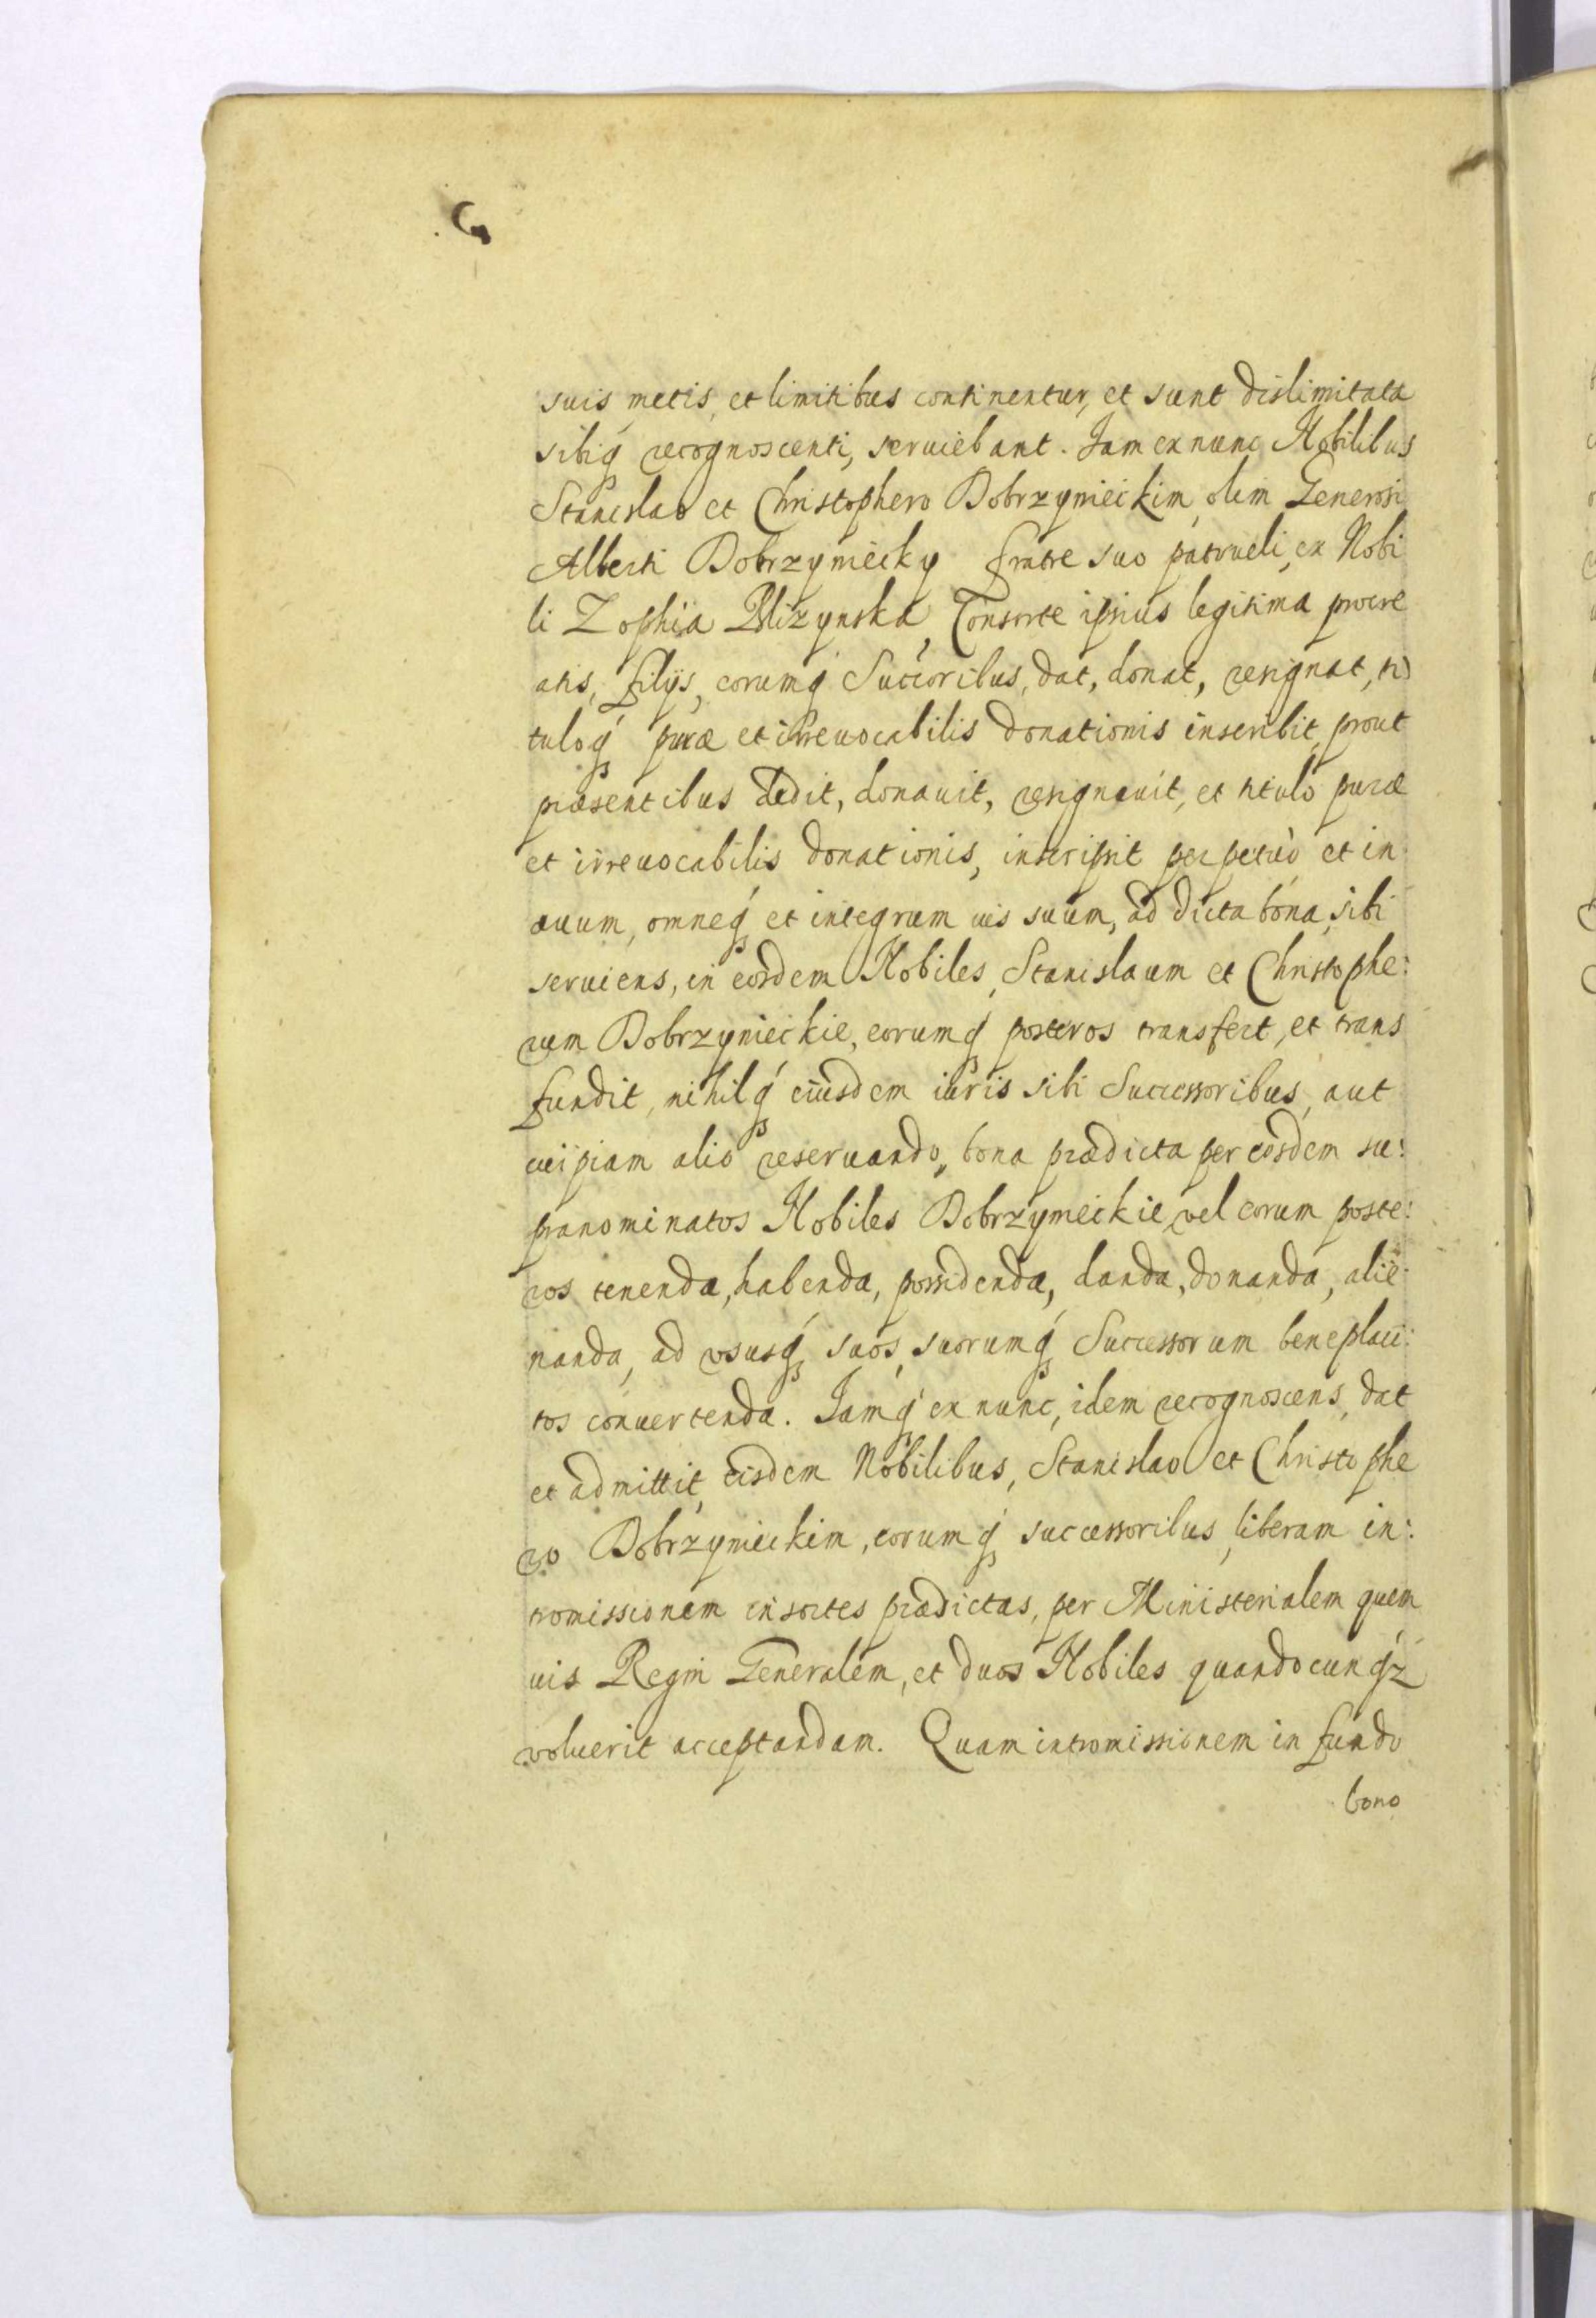 suis metis, et limitibus continentur, et sunt dislimitata
sibiq́ recognoscenti, seruiebant. Jam ex nunc Nobilibus
Stanislao et Christophero Dobrzynieckim, olim Generosi
Alberti Dobrzyniecky fratre suo patrueli, ex Nobi
li Zophia Blizynska, Consorte ipsius legitima procre
atis, filijs, eorumq́ Succoribus, dat, donat, resignat, ti
tuloq́ puræ et irreuocabilis donationis inscribit, prout
præsentibus dedit, donauit, resignauit, et titulo puræ
et irreuocabilis donationis, inscripsit perpetuò et in
æuum, omneq́ et integrum ius suum, ad dicta bona, sibi
seruiens, in eosdem Nobiles, Stanislaum et Christophe:
rum Dobrzynieckie, eorumq́ posteros transfert, et trans
fundit, nihilq́ eiusdem iuris sibi Successoribus, aut
cuipiam alio reseruando, bona prædicta per eosdem su:
pranominatos Nobiles Dobrzynieckie, vel eorum poste:
ros tenenda, habenda, possidenda, danda, donanda, alie:
nanda, ad vsusq́ suos, suorumq́ Successorum beneplaci:
tos conuertenda. Jamq́ ex nunc, idem recognoscens, dat
et admittit, eisdem Nobilibus, Stanislao et Christophe
ro Dobrzynieckim, eorumq́ successoribus, liberam in:
tromissionem in sortes prædictas, per Ministerialem quem
uis Regni Generalem, et duos Nobiles quandocunq́z
voluerit acceptandam. Quam intromissionem in fundo
bono